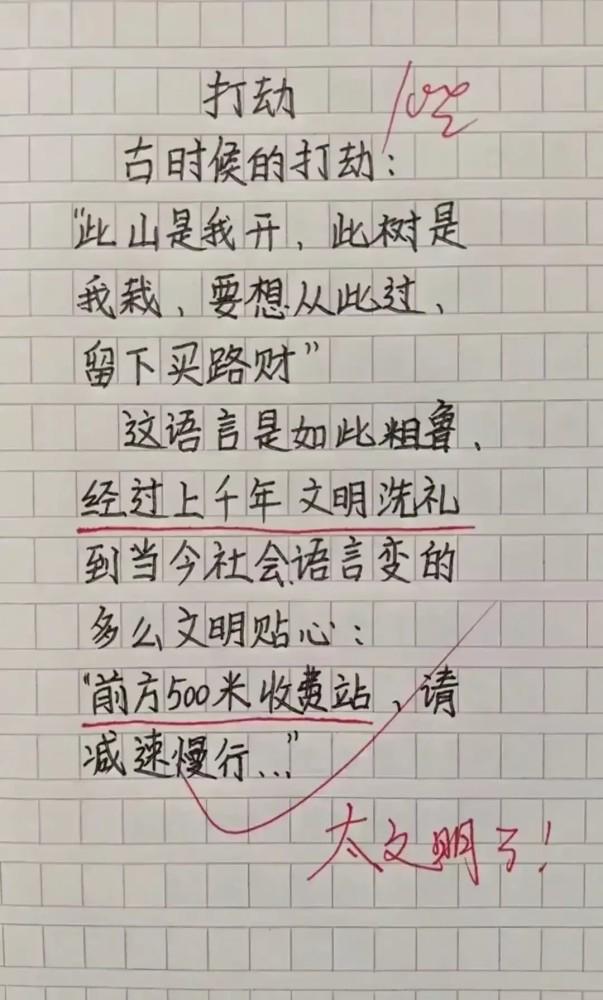 打劫
古时候的打劫:
"此山是我开,此树是
我栽、要想从此过、
留下买路财"
这语言是如此粗鲁、
经过上千年文明洗礼
到当今社会语言变的
多么文明贴心:
"前方500米收费站,请
减速慢行..."
太文明了!